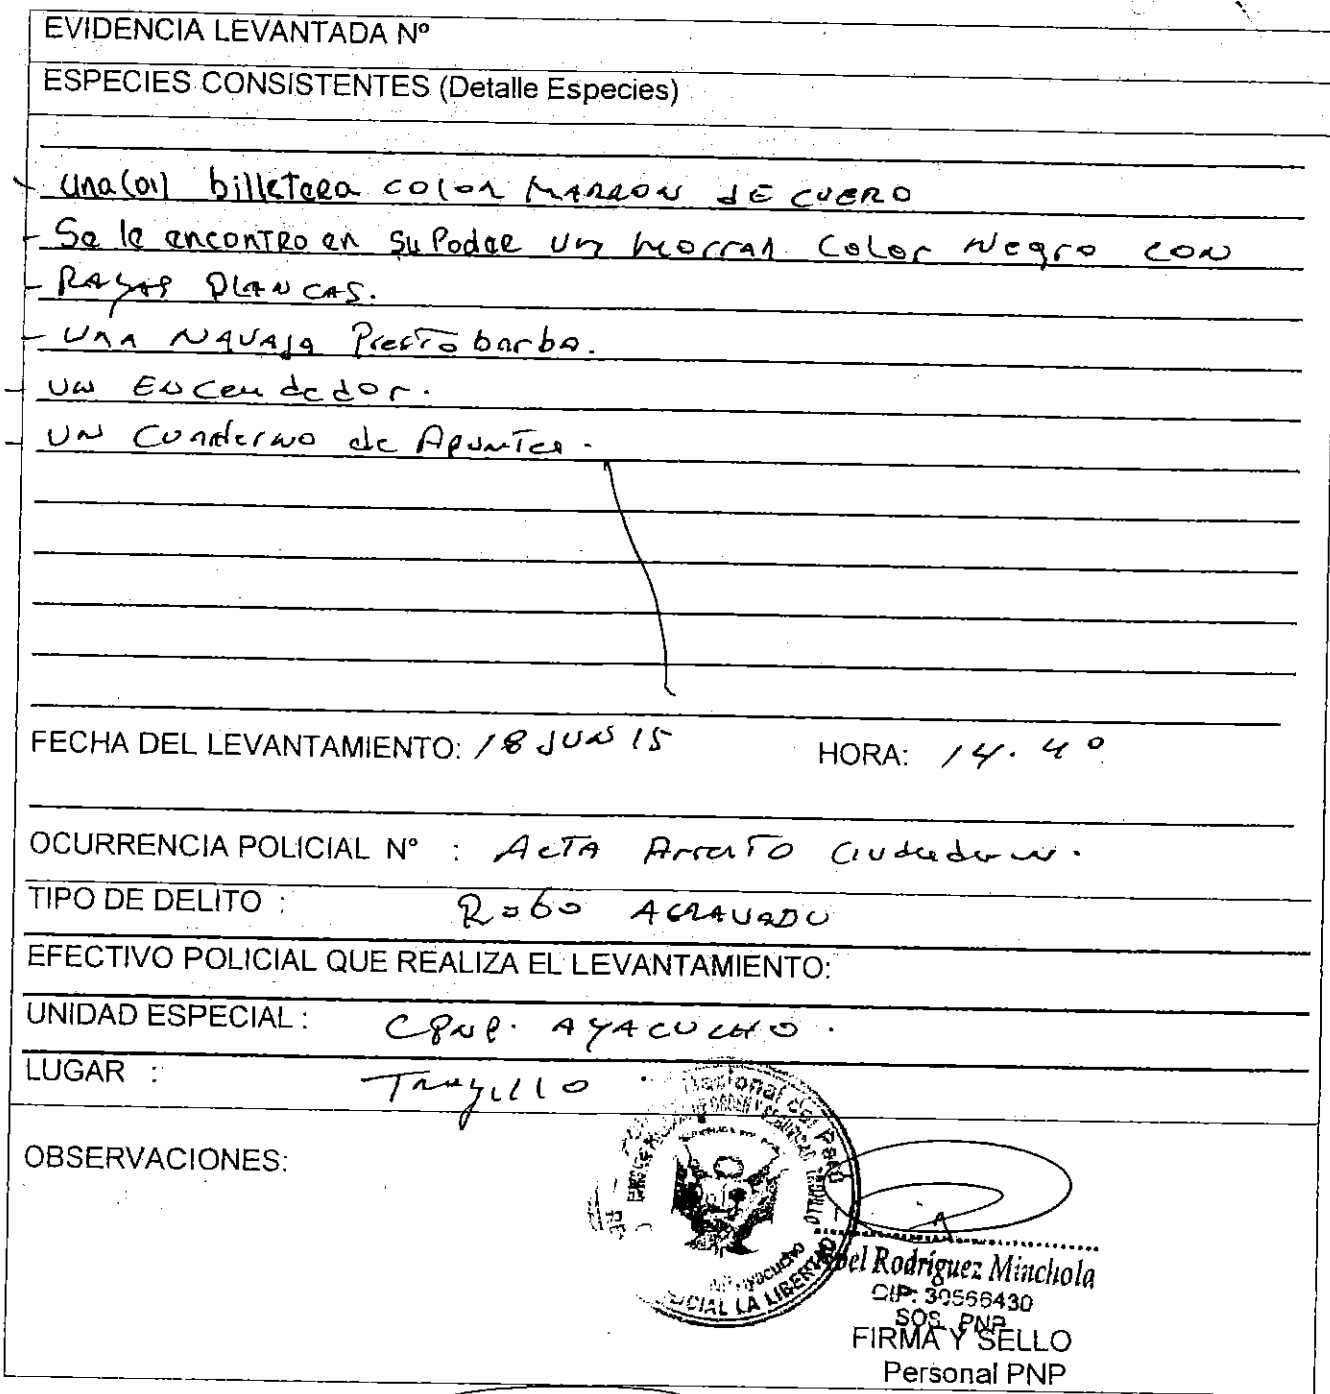 EVIDENCIA LEVANTADA Nº
ESPECIES CONSISTENTES (Detalle Especies)
- Una(01) billetera color MARRON DE CUERO
- Se le encontro en su Poder un morral Color Negro CON
- RAYAS BLANCAS.
- UNA NAVAJA Prestobarba.
- UN Encendedor.
- UN Cuaderno de Apuntes.
FECHA DEL LEVANTAMIENTO: 18 JUN 15 HORA: 14.40
OCURRENCIA POLICIAL Nº : ACTA Arresto Ciudadano.
TIPO DE DELITO : Robo AGRAVADO
EFECTIVO POLICIAL QUE REALIZA EL LEVANTAMIENTO:
UNIDAD ESPECIAL : CPNP. AYACUCHO.
LUGAR : Trujillo.
OBSERVACIONES:
Nacional del Perú
Ayacucho
LA LIBERTAD
Abel Rodríguez Minchola
CIP: 30566430
SOS. PNP
FIRMA Y SELLO
Personal PNP